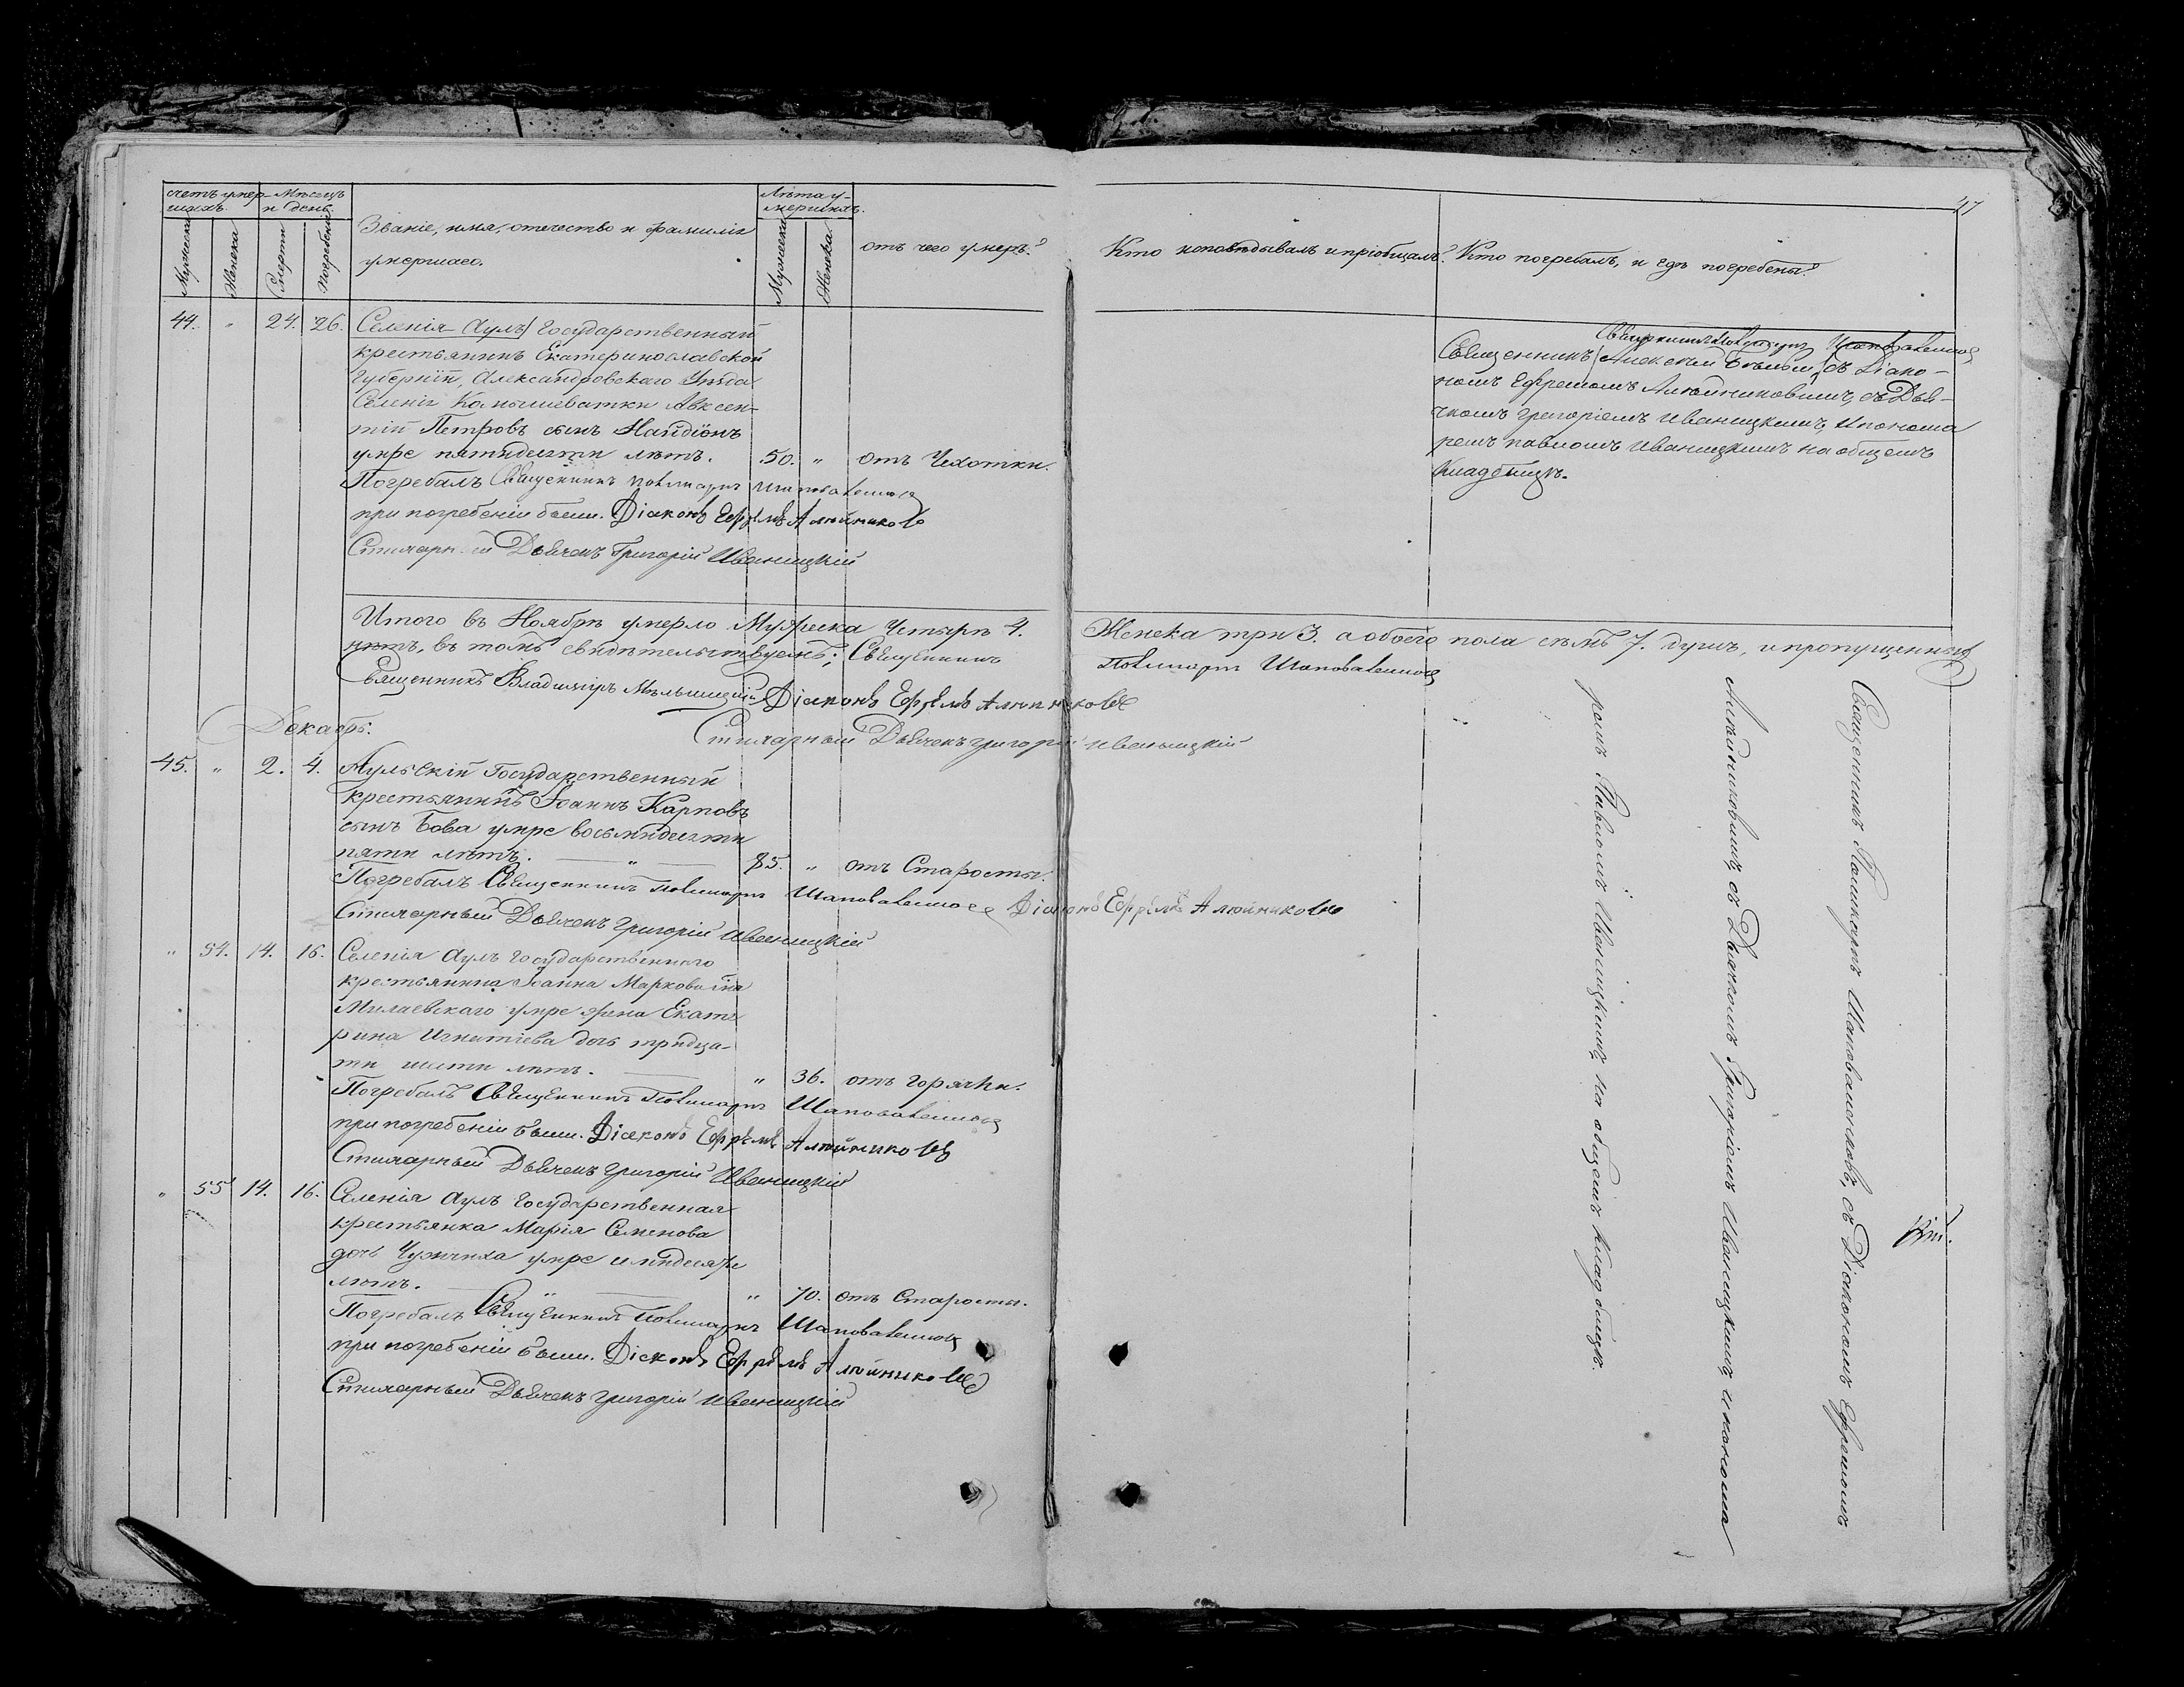 счетъ умер-
шихъ.
Мѣсяцъ
и день.
Званіе, имя, отечество и фамилія
умершаго.
Лѣта у-
мершихъ.
отъ чего умеръ?
Мужеска
Женска
Смерти
Погребенія
Мужеска
Женска
44. " 24. 26. Селенія Аулъ Государственный
крестьянинъ Екатеринославской
Губерніи, Александровскаго Уѣзда
Селенія Камышеватки Авксен-
тій Петровъ сынъ Найдіонъ
умре пятидесяти лѣтъ. 50. " отъ Чехотки.
Погребалъ Священникъ Поликарпъ Шаповаленков
при погребеніи были. Діаконъ Ефремъ Алюйников
Стихарный Дьячекъ Григорій Иваницкій
Итого въ Ноябрѣ умерло Мужеска Четыре 4.
нѣтъ, въ томъ свидѣтельствуемъ; Священникъ
Священникъ Владиміръ Діаконъ Ефремъ Алюйниковъ
Стихарный Дьячекъ Григорій Иваницкій
Декабрь.
45. " 2. 4. Аульскій Государственный
крестьянинъ Іоаннъ Карповъ
сынъ Бова умре восьмидесяти
пяти лѣтъ. " 85. " отъ Старости.
Погребалъ Священникъ Поликарпъ Шаповаленков Діаконъ Ефремъ Алюйников
Стихарный Дьячекъ Григорій Иваницкій
" 54. 14. 16. Селенія Аулъ Государственнаго
крестьянина Іоанна Маркова сына
Милаевскаго умре жена Екате
рина Игнатіева дочь тридца-
ти шести лѣтъ. " 36. отъ горячки.
Погребалъ Священникъ Поликарпъ Шаповаленков
при погребеніи были. Діаконъ Ефремъ Алюйников
Стихарный Дьячекъ Григорій Иваницкій
" 55 14. 16. Селенія Аулъ Государственная
крестьянка Марія Семенова
дочь умре семидесяти
лѣтъ. " " 70. отъ Старости.
Погребалъ Священникъ Поликарпъ Шаповаленков
при погребеніи были. Діаконъ Ефремъ Алюйников
Стихарный Дьячекъ Григорій Иваницкій
47
Кто исповѣдывалъ и пріобщалъ?
Кто погребалъ, и гдѣ погребены?
Священникъ Поликарпъ Шаповаленков
Священникъ Алексѣй Бѣлый, съ Діако-
номъ Ефремомъ Алюйниковымъ, съ Дья-
чкомъ Григоріемъ Иваницкимъ, и понома
ремъ Павломъ Иваницкимъ на общемъ
Кладбищѣ.
Женска три 3. а обоего пола семь 7. душъ, и пропущенныхъ
Поликарпъ Шаповаленков
Священникъ Поликарпъ Шаповаленковъ, съ Діакономъ Ефремомъ
Алюйниковымъ, съ Дьячкомъ Григоріемъ Иваницкимъ, и понома
ремъ Павломъ Иваницкимъ, на общемъ кладбищѣ.